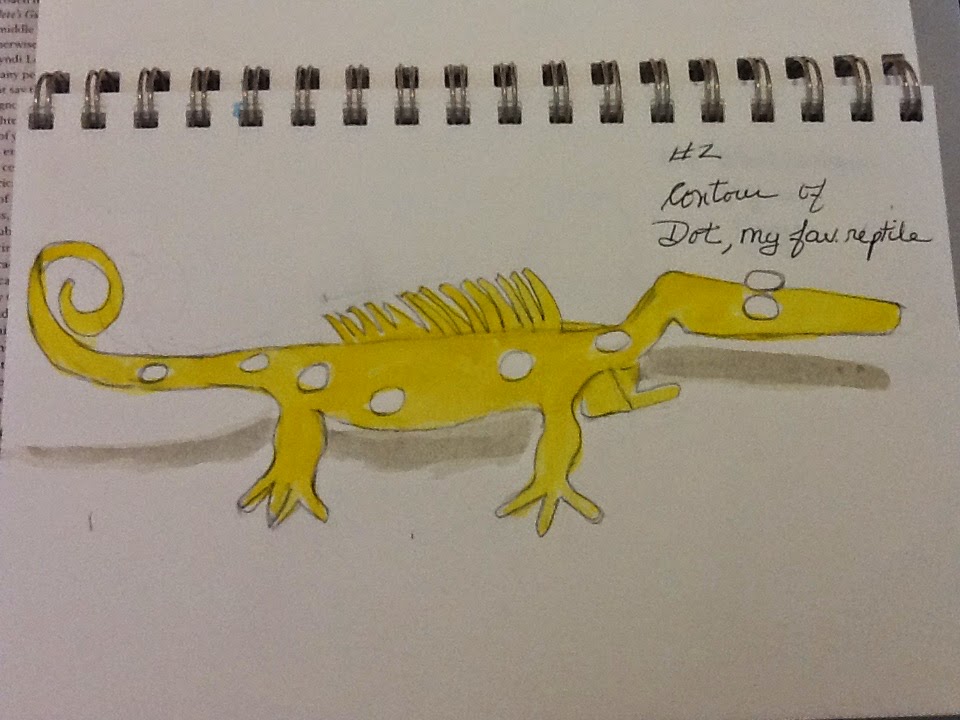 #2
Contour of
Dot, my fav. reptile